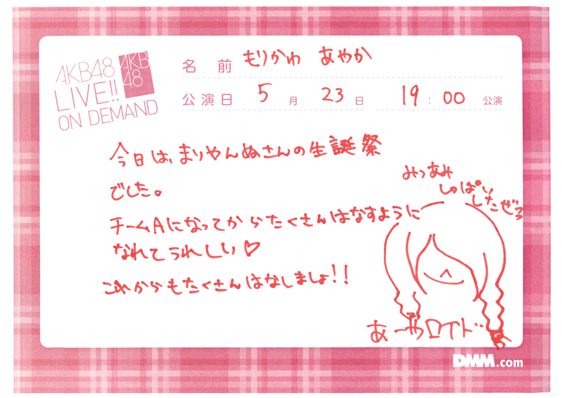 AKB48
LIVE!!
ON DEMAND
AKB
48
名前 もりかわ あやか
公演日 5月 23日 19:00 公演
今日は、まりやんぬさんの生誕祭
でした。
チームAになってからたくさんはなすように
なれてうれしい♡
これからもたくさんはなしましょ!!
みつあみ
しっぱい
したぜろ
あーやロイド
DMM.com